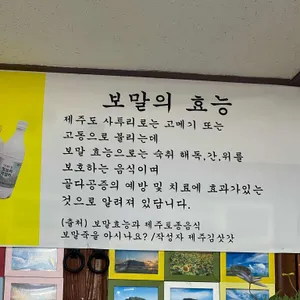 보말의 효능
제주도 사투리로는 고메기 또는
고동으로 불리는데
보말 효능으로는 숙취 해독,간,위를
보호하는 음식이며
골다공증의 예방 및 치료에 효과가있는
것으로 알려져 있답니다.
(출처) 보말효능과 제주토종음식
보말죽을 아시나요? /작성자 제주김삿갓